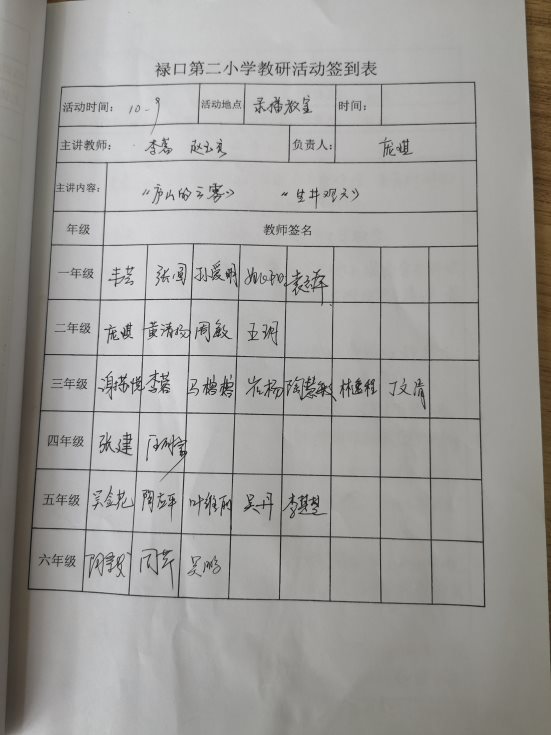 禄口第二小学教研活动签到表
活动时间： 10.9 活动地点 录播教室 时间：
主讲教师： 李蓉 负责人： 庞琪
主讲内容： 《庐山的云雾》 《坐井观天》
年级 教师签名
一年级 韦芸 张园 孙爱明
二年级 庞琪 黄清扬 周敏 王玥
三年级 李蓉 马楷楷 崔杨 陶慧敏 丁文清
四年级 张建
五年级 吴金花 陶立平 叶维丽 吴丹 李慧慧
六年级 周芹 吴鹏